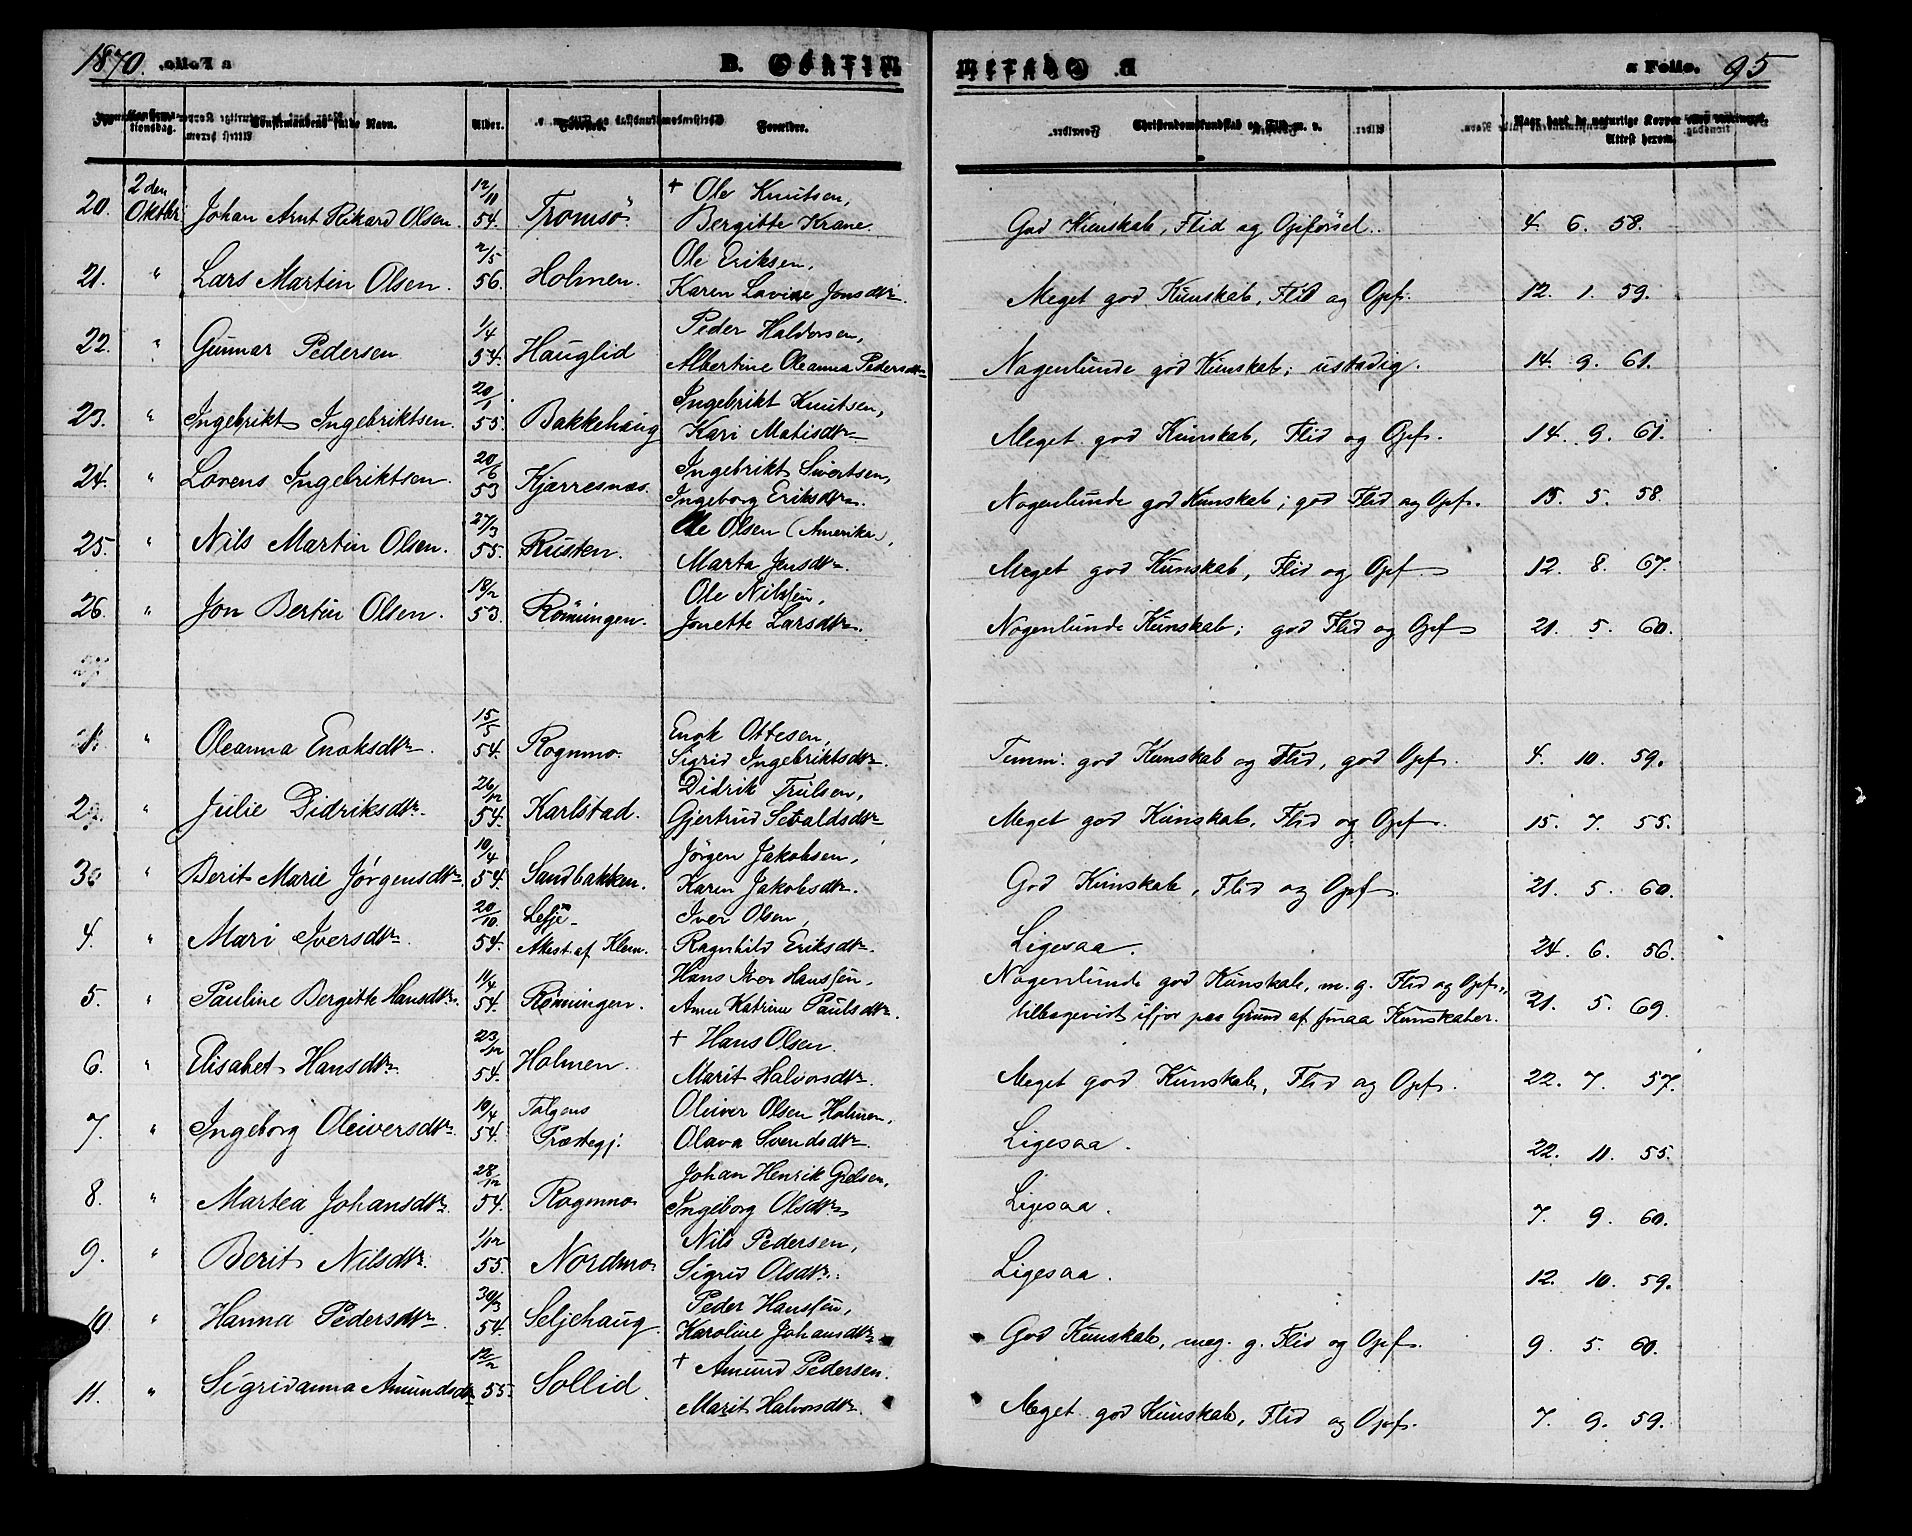 1870. a Folio. B. Confirm B. Confirm a Folio. 95
No. Confirmationsdag. Confirmandens fulde Navn. Alder. Fødested. Forældre. Christendomskundskab og Flid m. v. Naar havt de naturlige Kopper eller vaccineret. Attest herom.
20. 2den Oktbr Johan Arnt Rikard Olsen. 12/11 54. Tromsö + Ole Knutsen, Bergitte Krane God Kunskab, Flid og Opförsel. 4. 6. 58.
21. " Lars Martin Olsen. 2/5 56. Holmen. Ole Eriksen, Karen Lovise Jonsdtr. Meget god Kunskab, Flid og Opf. 12. 1. 59.
22. " Gunnar Pedersen 1/4 54. Hauglid Peder Haldorsen, Albertine Oleanna Pedersdtr Nogenlunde god Kunskab; ustadig. 14. 9. 61.
23. " Ingebrikt Ingebriktsen. 20/1 55. Bakkehaug Ingebrikt Knutsen, Kari Matisdtr Meget god Kunskab, Flid og Opf. 14. 9. 61.
24. " Lorens Ingebriktsen. 20/6 53 Kjærresnæs. Ingebrikt Sivertsen, Ingeborg Eriksdtr. Nogenlunde god Kunskab; god Flid og Opf. 15. 5. 58.
25. " Nils Martin Olsen. 27/3 55. Rusten. Ole Olsen (Amerika), Marta Jensdtr. Meget god Kunskab, Flid og Opf. 12. 8. 67.
26. " Jon Bertin Olsen. 18/2 53. Rönningen. Ole Nilssen, Jonette Larsdtr. Nogenlunde Kunskab; god Flid og Opf 21. 5. 60.
27
" Oleanna Enoksdtr. 15/5 54. Rognmo. Enok Ottesen, Sigrid Ingebriktsdtr. Temm. god Kunskab og Flid, god Opf. 4. 10. 59.
" Julie Didriksdtr. 26/12 54. Karlstad. Didrik Trulsen, Gjertrud Sevaldsdtr Meget god Kunskab, Flid og Opf. 15. 7. 55.
" Berit Marie Jörgensdtr. 10/4 54. Sandbakken. Jörgen Jakobsen, Karen Jakobsdtr. God Kunskab, Flid og Opf. 21. 5. 60.
4. " Mari Iversdtr 20/10 54. Lesje Attest af Klem. Iver Olsen, Ragnhild Eriksdtr. Ligesaa. 24. 6. 56.
5. " Pauline Bergitte Hansdtr. 11/4 54. Rönningen. Hans Iver Hanssen, Anne Katrine Paulsdtr. Nogenlunde god Kunskab, m. g. Flid og Opf., 21. 5. 69.
tilbagevist ifjor paa Grund af smaa Kunskaber.
6. " Elisabet Hansdtr. 23/12 54. Holmen. + Hans Olsen. Marit Halvorsdtr. Meget god Kunskab, Flid og Opf. 22. 7. 57.
7. " Ingeborg Oleiversdtr. 10/4 54. Tolgens Præstegj. Oleiver Olsen Holmen, Olava Svendsdtr. Ligesaa. 22. 11. 55.
8. " Martea Johansdtr. 28/12 54. Rognmo Johan Henrik Grelsen, Ingeborg Olsdtr Ligesaa. 7. 9. 60.
9. " Berit Nilsdtr. 1/12 55. Nordmo. Nils Pedersen, Sigrid Olsdtr. Ligesaa. 12. 10. 59.
10. " Hanna Pedersdtr. 30/3 54. Seljehaug. Peder Hanssen, Karoline Johansdtr God Kunskab, meg. g. Flid og Opf. 9. 5. 60.
11. " Sigridanna Amundsdtr 12/2 55. Sollid. + Amund Pedersen. Marit Halvorsdtr. Meget god Kunskab, Flid og Opf. 7. 9. 59.